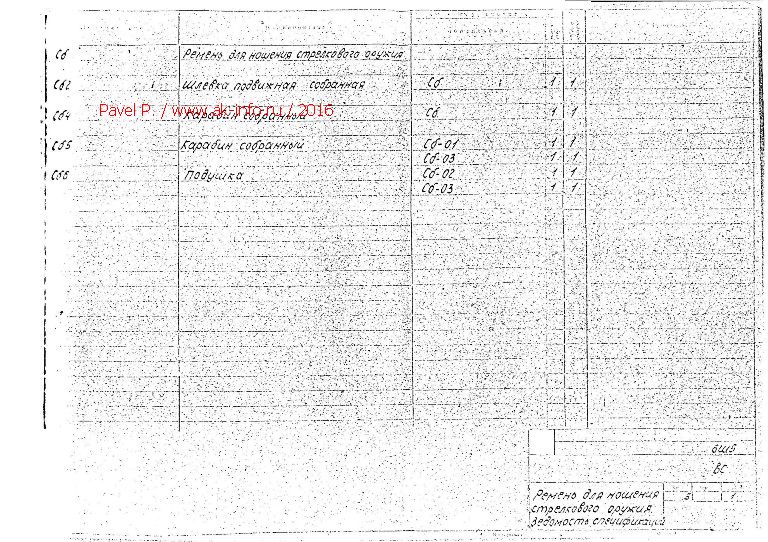 Сб Ремень для ношения стрелкового оружия
Сб2 Шлевка подвижная собранная Сб 1 1
Pavel P. / www.ak-info.ru / 2016
Сб4 Карабин собранный Сб 1 1
Сб5 Карабин собранный Сб-01 1 1
Сб-03 1 1
Сб6 Подушка Сб-02 1 1
Сб-03 1 1
6Ш5
ВС
Ремень для ношения
стрелкового оружия.
Ведомость спецификаций